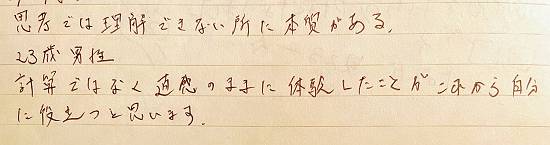 思考では理解できない所に本質がある。
23歳 男性
計算ではなく直感のままに体験したことがこれから自分
に役立つと思います。